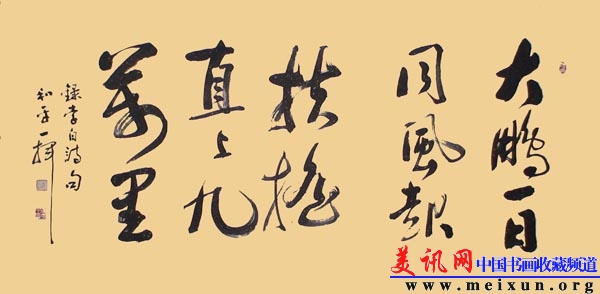 大鵬一日
同風起
扶搖
直上九
萬里
錄李白詩句
和平一揮
美讯网 中国书画收藏频道
www.meixun.org